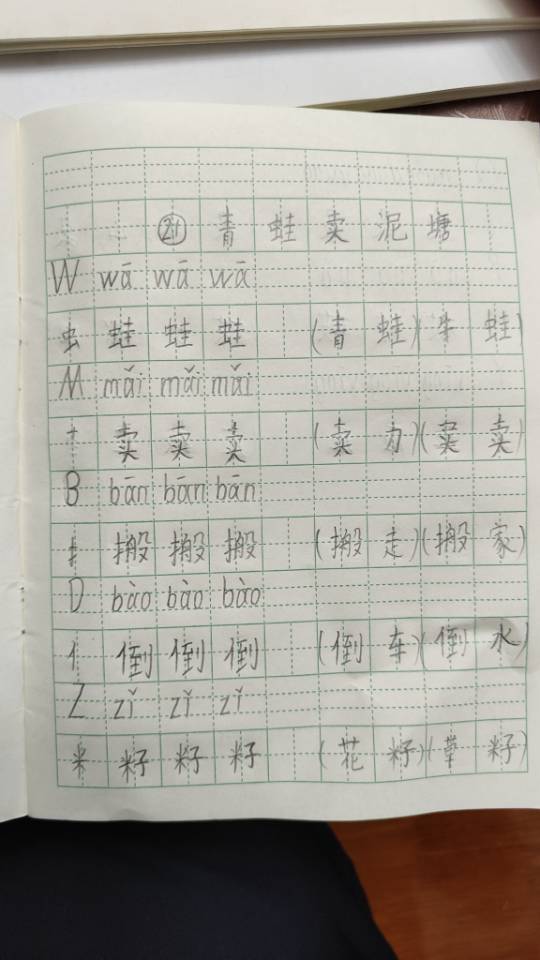 ㉑ 青蛙卖泥塘
W wā wā wā
虫 蛙 蛙 蛙 (青蛙)(牛蛙)
M mǎi mǎi mǎi
十 卖 卖 卖 (卖力)(买卖)
B bān bān bān
扌 搬 搬 搬 (搬走)(搬家)
D bào bào bào
亻 倒 倒 倒 (倒车)(倒水)
Z zǐ zǐ zǐ
米 籽 籽 籽 (花籽)(草籽)